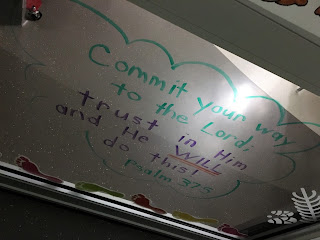 Commit your way
to the Lord;
trust in Him
and He WILL
do this!
Psalm 37:5